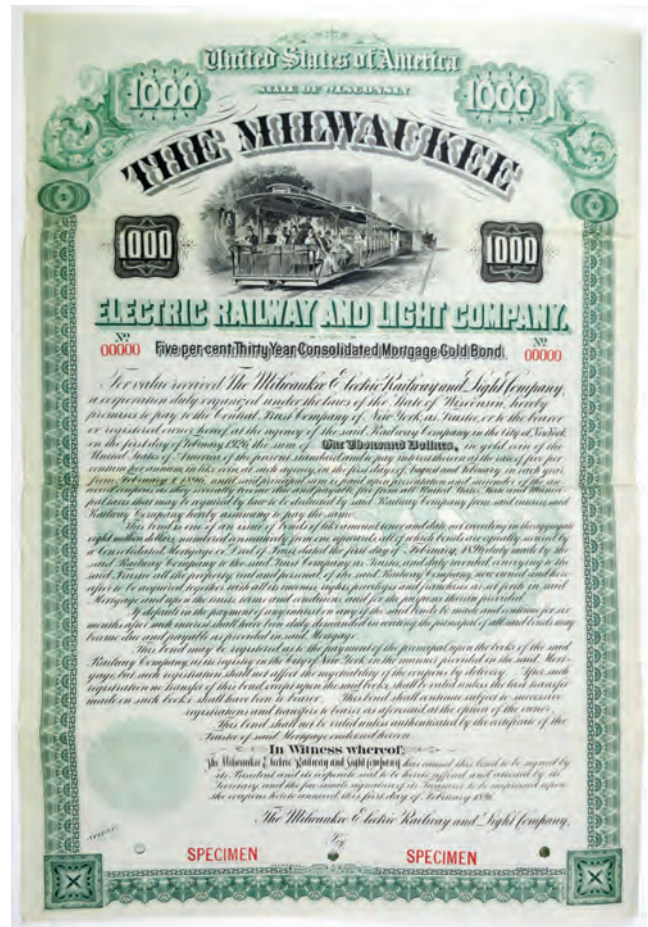 United States of America
1000 STATE OF WISCONSIN 1000
THE MILWAUKEE
1000 1000
ELECTRIC RAILWAY AND LIGHT COMPANY.
No 00000 Five per cent Thirty Year Consolidated Mortgage Gold Bond. No 00000
For value received The Milwaukee Electric Railway and Light Company,
a corporation duly organized under the laws of the State of Wisconsin, hereby
promises to pay to the Central Trust Company of New York, as Trustee, or to the bearer
or registered owner hereof at the agency of the said Railway Company in the City of New York
on the first day of February 1926, the sum of One Thousand Dollars, in gold coin of the
United States of America of the present standard, and to pay interest thereon at the rate of five per
centum per annum, in like coin at such agency, on the first days of August and February, in each year,
from February 1, 1896, until said principal sum is paid upon presentation and surrender of the an
nexed coupons as they severally become due and payable free from all United States, State and Munici
pal taxes that may be required by law to be deducted by said Railway Company from said interest, said
Railway Company hereby assuming to pay the same.
This bond is one of an issue of bonds of like amount, tenor and date, not exceeding in the aggregate
eight million dollars, numbered consecutively from one upwards, all of which bonds are equally secured by
a Consolidated Mortgage or Deed of Trust dated the first day of February, 1896, duly made by the
said Railway Company to the said Trust Company as Trustee, and duly recorded, conveying to the
said Trustee all the property, real and personal, of the said Railway Company, now owned and here
after to be acquired, together with all its income, rights, privileges and franchises as set forth in said
Mortgage and upon the trusts, terms and conditions, and for the purposes therein provided.
If default in the payment of any interest on any of the said bonds be made and continue for six
months after such interest shall have been duly demanded in writing, the principal of all said bonds may
become due and payable as provided in said Mortgage.
This bond may be registered as to the payment of the principal upon the books of the said
Railway Company, at its registry in the City of New York, in the manner provided in the said Mort-
gage, but such registration shall not affect the negotiability of the coupons by delivery. After such
registration no transfer of this bond, except upon the said books, shall be valid unless the last transfer
made on such books shall have been to bearer. This bond shall continue subject to successive
registrations and transfers to bearer as aforesaid at the option of the owner.
This bond shall not be valid unless authenticated by the certificate of the
Trustee of said Mortgage endorsed hereon.
In Witness whereof,
The Milwaukee Electric Railway and Light Company has caused this bond to be signed by
its President and its corporate seal to be hereto affixed and attested by its
Secretary, and the facsimile signature of its Treasurer to be impressed upon
the coupons hereto annexed, this first day of February 1896.
The Milwaukee Electric Railway and Light Company,
ATTEST:
By
SPECIMEN SPECIMEN